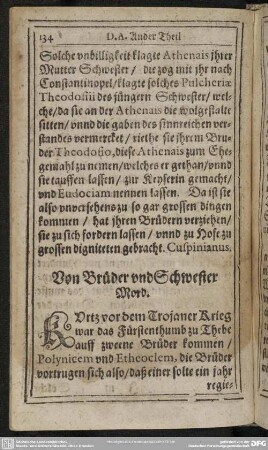 134 D.A. Ander Theil
Solche vnbilligkeit klagte Athenais jhrer
Mutter Schwester / die zog mit jhr nach
Constantinopel / klagte solches Pulcheriæ
Theodosiii des jüngern Schwester / wel-
che / da sie an der Athenais die wolgestalte
sitten / vnnd die gaben des sinnreichen ver-
standes vermercket / riethe sie jhrem Bru-
der Theodosio, diese Athenais zum Ehe-
gemahl zu nemen / welches er gethan / vnnd
sie tauffen lassen / zur Keyserin gemacht /
vnd Eudociam nennen lassen. Da ist sie
also vnversehens zu so gar grossen dingen
kommen / hat jhren Brüdern verziehen /
sie zu sich fordern lassen / vnnd zu Hofe zu
grossen digniteten gebracht. Cuspinianus.
Von Brüder vnd Schwester
Mord.
KUrtz vor dem Trojaner Krieg
war das Fürstenthumb zu Thebe
auff zweene Brüder kommen /
Polynicem vnd Etheoclem, die Brüder
vortrugen sich also / daß einer solte ein jahr
regie-
DFG